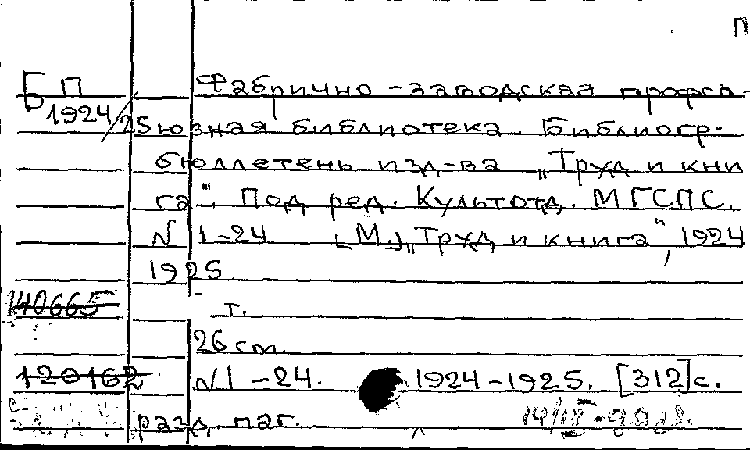 П
Б П Фабрично-заводская профсо-
1924/25 юзная библиотека. Библиогр.
бюллетень изд-ва „Труд и кни
га“. Под ред. Культотд. МГСПС.
N 1-24 [М.] „Труд и книга“, 1924
1925
140665 т.
26 см
120162 N 1-24. 1924-1925. [312] с.
разд. паг.